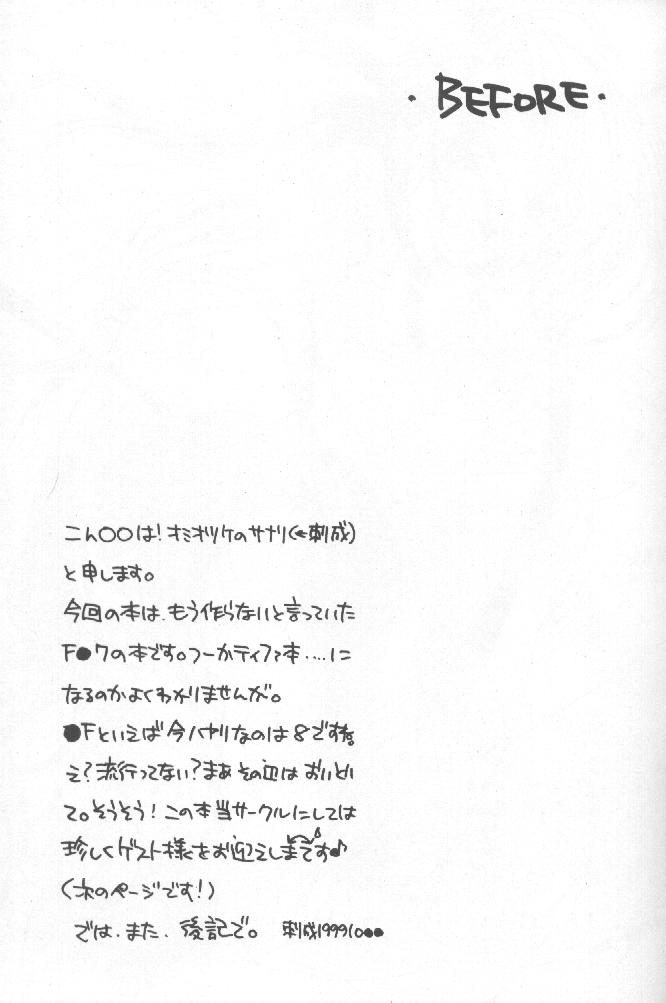 ・BEFORE・
こん○○は!オミオツケのサナリ(←刺成)
と申します。
今回の本は、もう作らないと言っていた
F●7の本です。つーかティファ本‥‥に
なるのかよくわかりませんが。
●Fといえば今ハヤリなのは8ですね。
え?流行ってない?まぁその辺はおいとい
て。そうそう!この本当サークルにしては
珍しくゲスト様をお迎えしまてす♪
(次のページです!)
では、また、後記で。 刺成199910●●